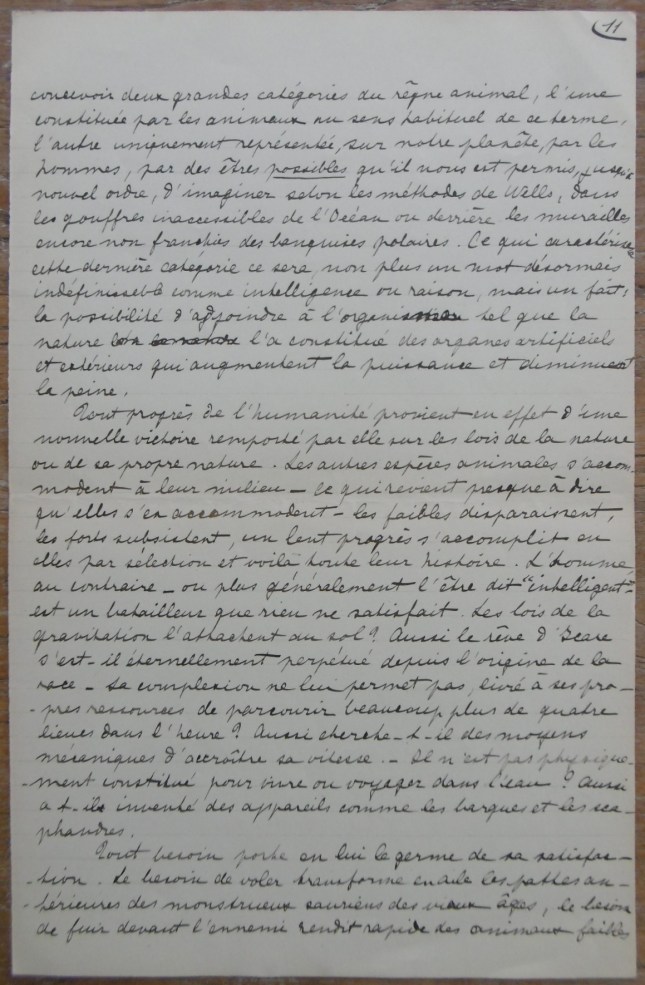 11
concevoir deux grandes catégories du règne animal, l'une
constituée par les animaux au sens habituel de ce terme,
l'autre uniquement représentée, sur notre planète, par les
hommes, par des êtres possibles qu'il nous est permis, jusqu'à
nouvel ordre, d'imaginer selon les méthodes de Wells, dans
les gouffres inaccessibles de l'Océan ou derrière les murailles
encore non franchies des banquises polaires. Ce qui caractérisera
cette dernière catégorie ce sera, non plus un mot désormais
indéfinissable comme intelligence ou raison, mais un fait,
la possibilité d'adjoindre à l'organisme tel que la
nature l'a constitué des organes artificiels
et extérieurs qui augmentent la puissance et diminuent
la peine.
Tout progrès de l'humanité provient en effet d'une
nouvelle victoire remporté par elle sur les lois de la nature
ou de sa propre nature. Les autres espèces animales s'accom-
modent à leur milieu – ce qui revient presque à dire
qu'elles s'en accommodent – les faibles disparaissent,
les forts subsistent, un lent progrès s'accomplit en
elles par sélection et voilà toute leur histoire. L'homme,
au contraire – ou plus généralement l'être dit "intelligent" –
est un batailleur que rien ne satisfait. Les lois de la
gravitation l'attachent au sol? Aussi le rêve d'Icare
s'est-il éternellement perpétué depuis l'origine de la
race – Sa complexion ne lui permet pas, livré à ses pro-
- pres ressources de parcourir beaucoup plus de quatre
lieues dans l'heure? Aussi cherche-t-il des moyens
mécaniques d'accroître sa vitesse. – Il n'est pas physique-
- ment constitué pour vivre ou voyager dans l'eau? Aussi
a t-il inventé des appareils comme les barques et les sca-
phandres.
Tout besoin porte en lui le germe de sa satisfac-
- tion. Le besoin de voler transforme en aile les pattes an-
- térieures des monstrueux sauriens des vieux âges, le besoin
de fuir devant l'ennemi rendit rapide des animaux faibles